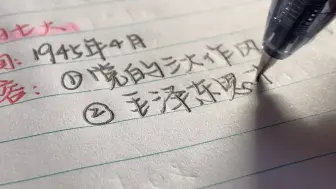 七大
间: 1945年4月
容: ①党的三大作风
②毛泽东思